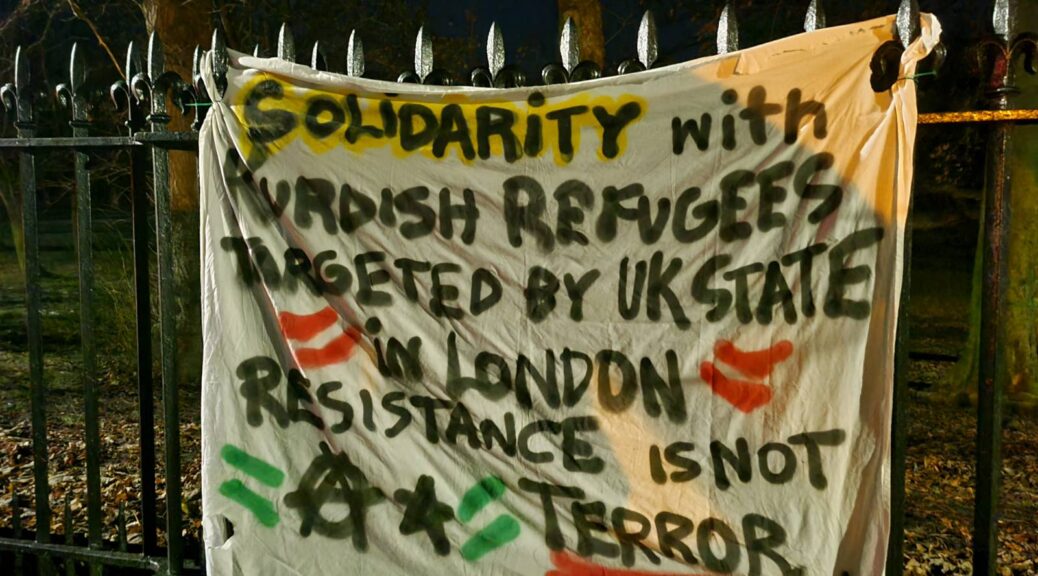 SOLiDARiTY with
KURDISH REFUGEES
TARGETED BY UK STATE
in LONDON
RESISTANCE is NOT
TERROR